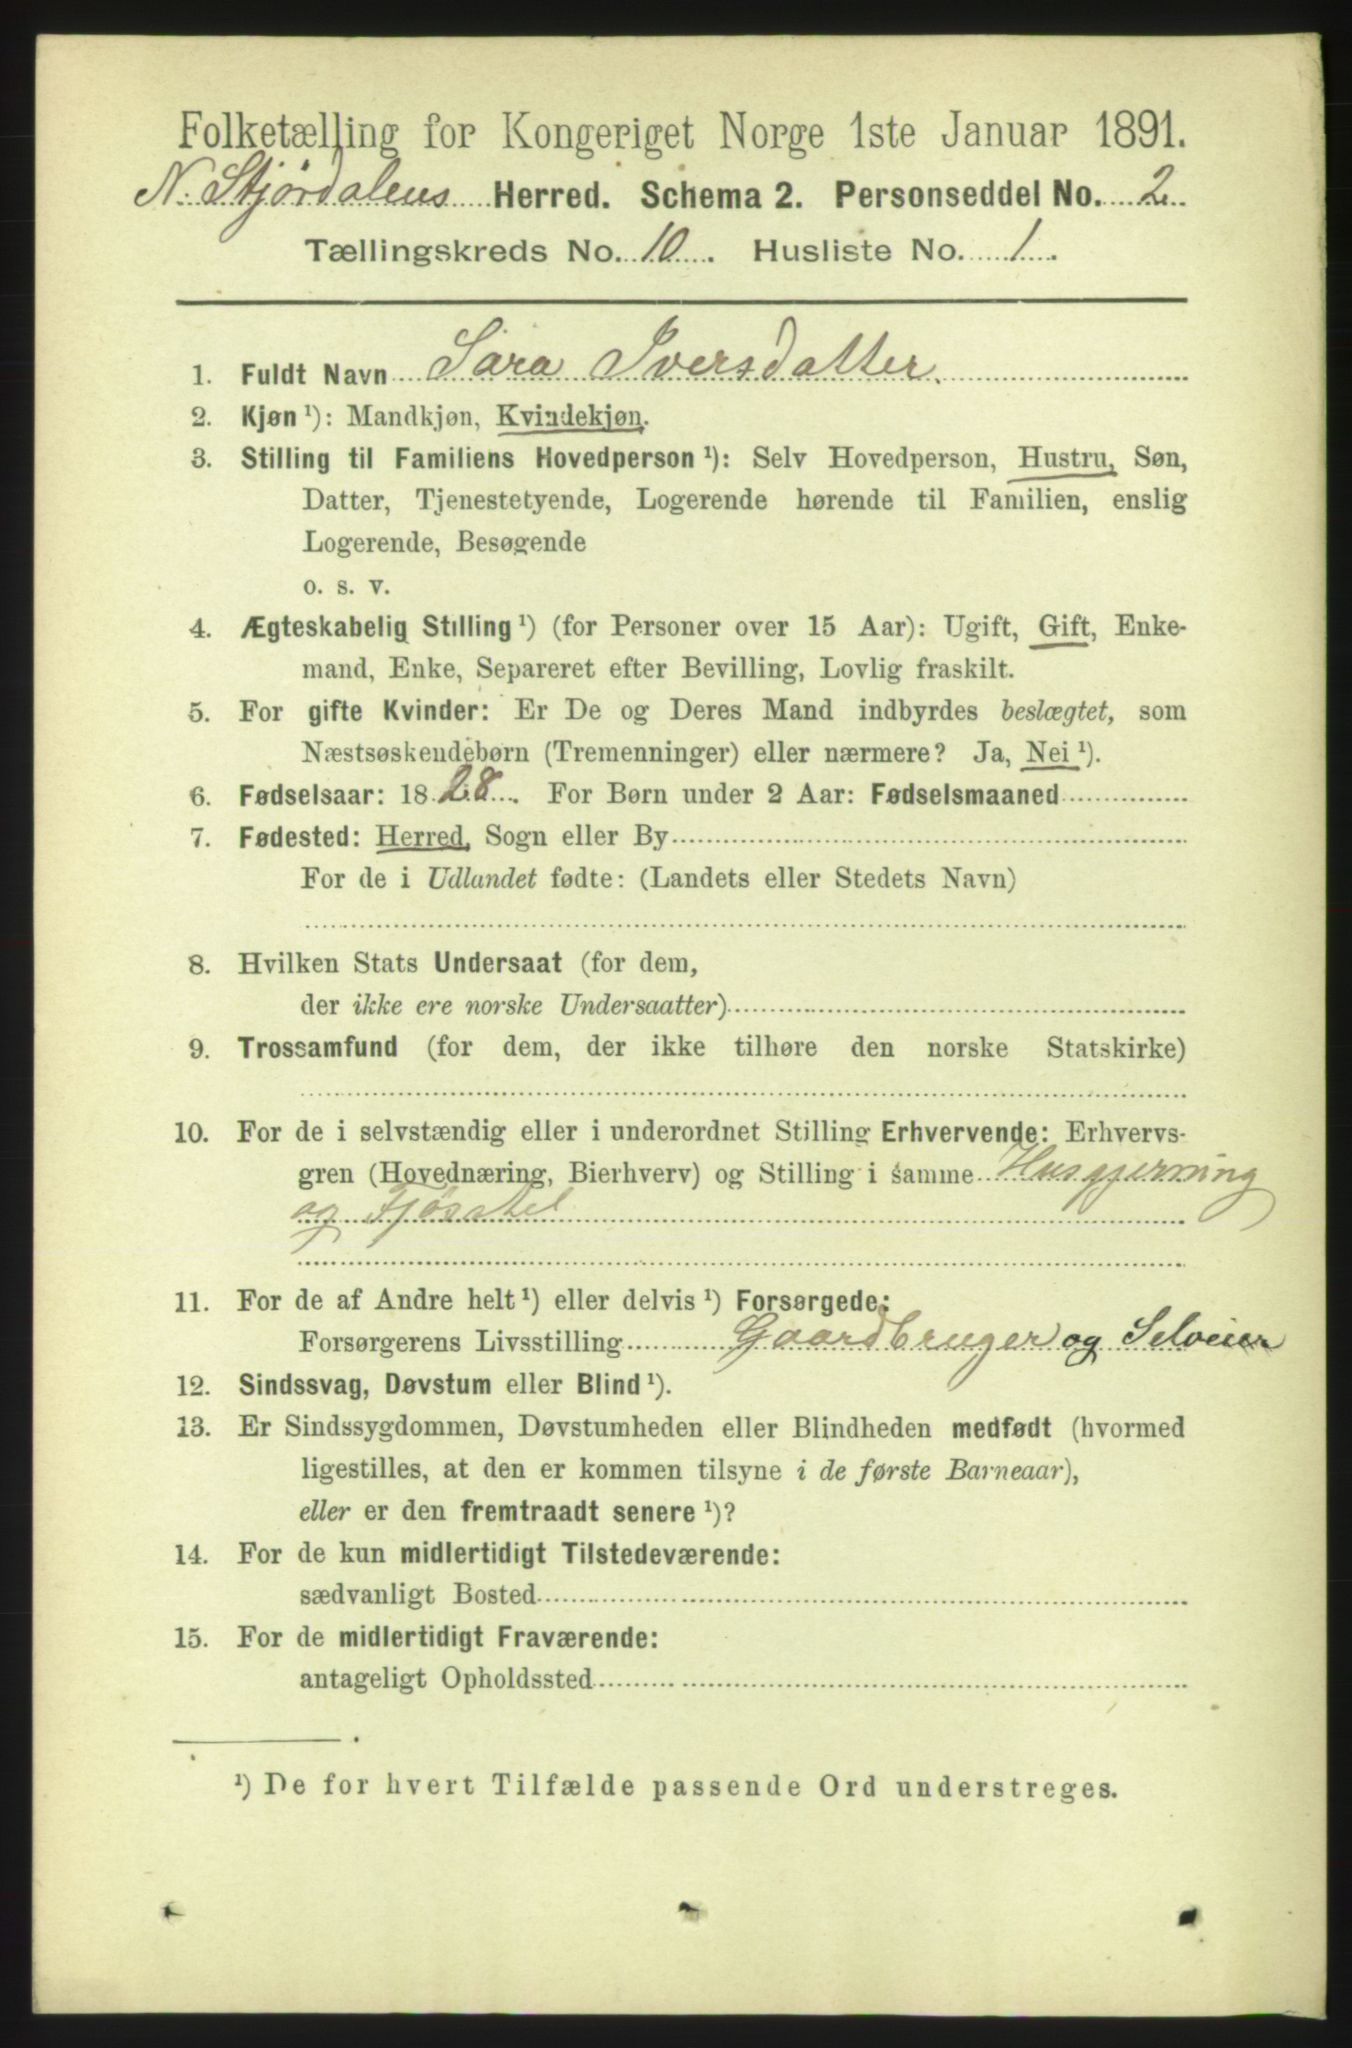 Folketælling for Kongeriget Norge 1ste Januar 1891.
N. Stjørdalens Herred. Schema 2. Personseddel No. 2
Tællingskreds No. 10. Husliste No. 1.
1. Fuldt Navn Sara Iversdatter.
2. Kjøn ¹): Mandkjøn, Kvindekjøn.
3. Stilling til Familiens Hovedperson ¹): Selv Hovedperson, Hustru, Søn,
Datter, Tjenestetyende, Logerende hørende til Familien, enslig
Logerende, Besøgende
o. s. v.
4. Ægteskabelig Stilling ¹) (for Personer over 15 Aar): Ugift, Gift, Enke-
mand, Enke, Separeret efter Bevilling, Lovlig fraskilt.
5. For gifte Kvinder: Er De og Deres Mand indbyrdes beslægtet, som
Næstsøskendebørn (Tremenninger) eller nærmere? Ja, Nei ¹).
6. Fødselsaar: 1828. For Børn under 2 Aar: Fødselsmaaned
7. Fødested: Herred, Sogn eller By
For de i Udlandet fødte: (Landets eller Stedets Navn)
8. Hvilken Stats Undersaat (for dem,
der ikke ere norske Undersaatter)
9. Trossamfund (for dem, der ikke tilhøre den norske Statskirke)
10. For de i selvstændig eller i underordnet Stilling Erhvervende: Erhvervs-
gren (Hovednæring, Bierhverv) og Stilling i samme Husgjerning
og Fjøsstel
11. For de af Andre helt ¹) eller delvis ¹) Forsørgede:
Forsørgerens Livsstilling Gaardbruger og Selveier
12. Sindssvag, Døvstum eller Blind ¹).
13. Er Sindssygdommen, Døvstumheden eller Blindheden medfødt (hvormed
ligestilles, at den er kommen tilsyne i de første Barneaar),
eller er den fremtraadt senere ¹)?
14. For de kun midlertidigt Tilstedeværende:
sædvanligt Bosted
15. For de midlertidigt Fraværende:
antageligt Opholdssted
¹) De for hvert Tilfælde passende Ord understreges.